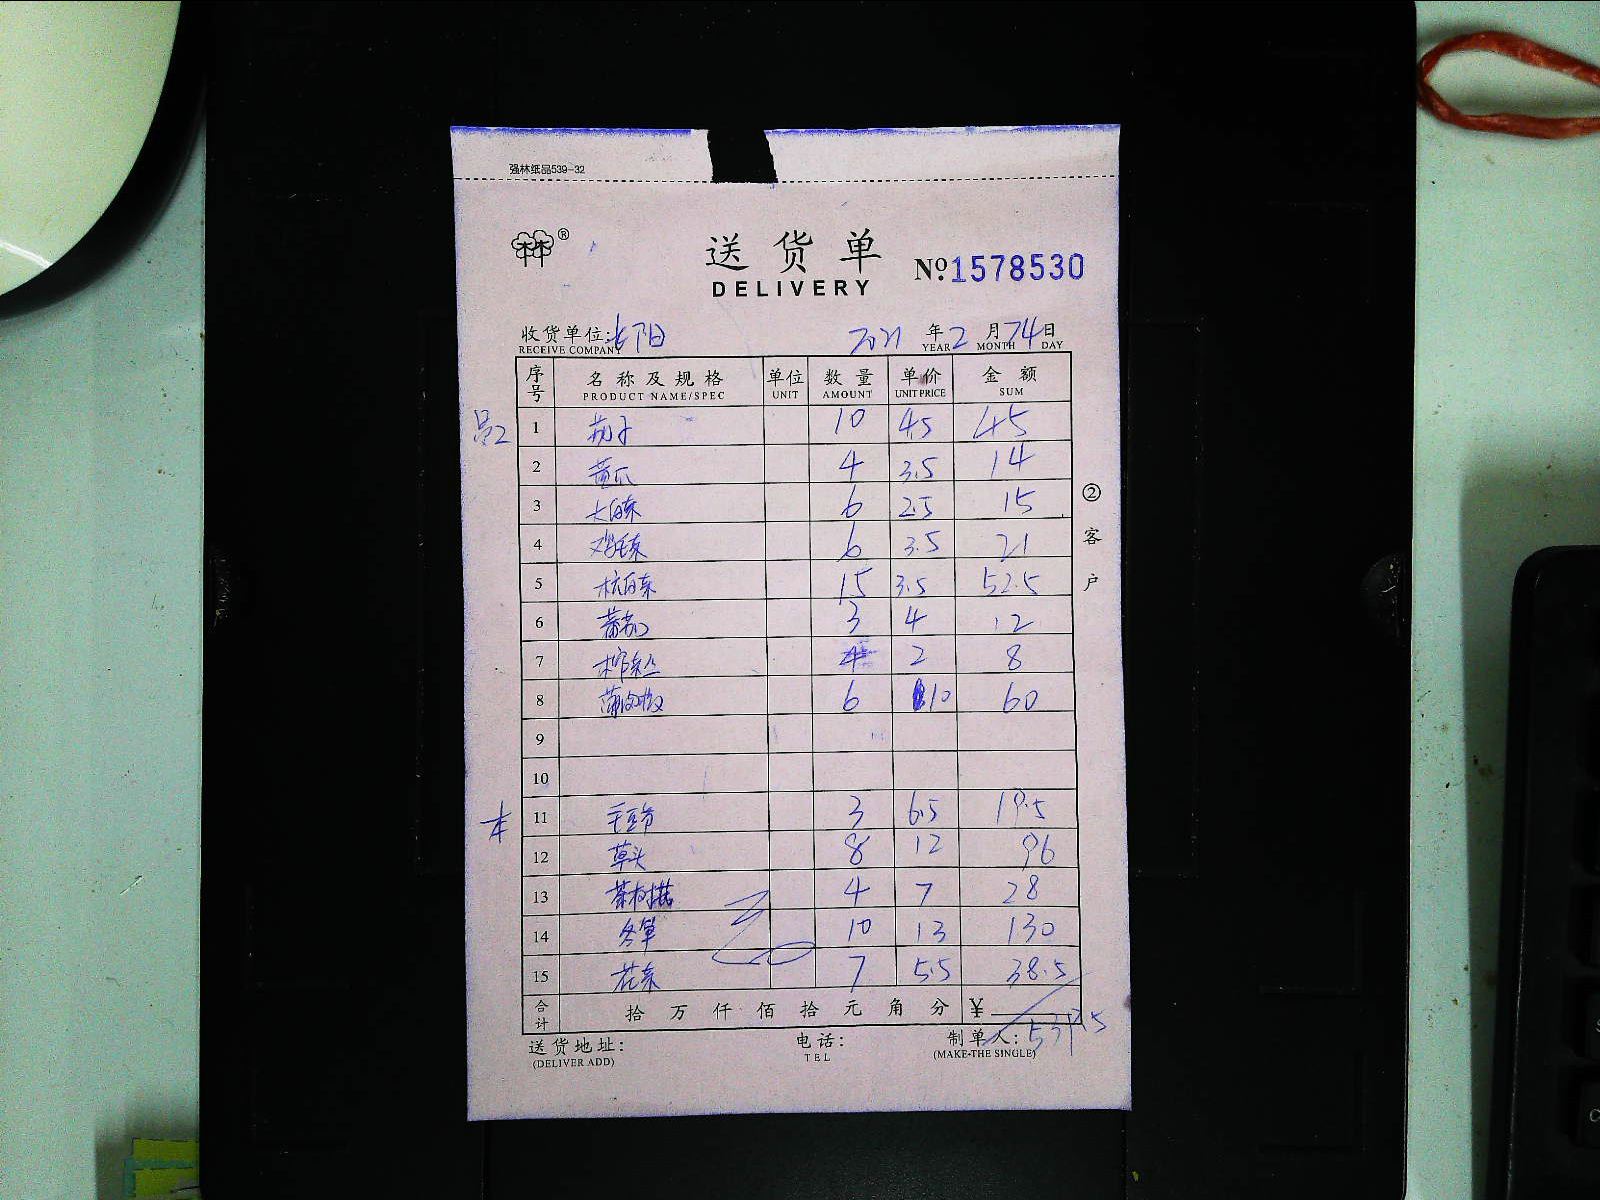 强林纸品539-32
林林®
送货单 №1578530
DELIVERY
收货单位:长阳 2021年2月24日
RECEIVE COMPANY YEAR MONTH DAY
序号 名称及规格 单位 数量 单价 金额
PRODUCT NAME/SPEC UNIT AMOUNT UNIT PRICE SUM
1 茄子 10 4.5 45
2 黄瓜 4 3.5 14
3 大白菜 6 2.5 15
4 鸡毛菜 6 3.5 21
5 杭白菜 15 3.5 52.5
6 蕃茄 3 4 12
7 榨菜丝 4 2 8
8 6 10 60
9
10
本 11 毛豆节 3 6.5 19.5
12 草头 8 12 96
13 茶树菇 4 7 28
14 冬笋 10 13 130
15 花菜 7 5.5 38.5
合计 拾万仟佰拾元角分 ¥
539.5
②客户
送货地址: 电话: 制单人:
(DELIVER ADD) TEL (MAKE-THE SINGLE)